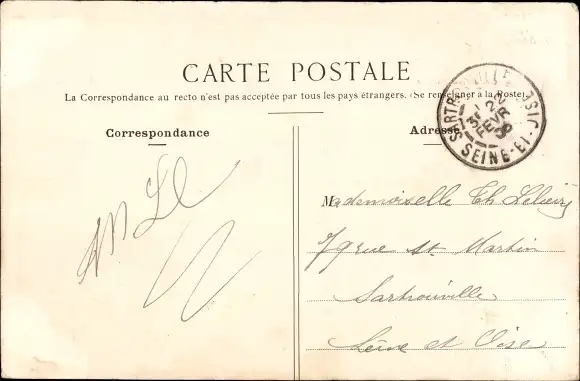 CARTE POSTALE
La Correspondance au recto n'est pas acceptée par tous les pays étrangers. (Se renseigner à la Poste)
Correspondance
Adresse
SARTROUVILLE
SEINE-ET-OISE
FEVR
Mademoiselle Th.
79 rue St. Martin
Sartrouville
Seine et Oise